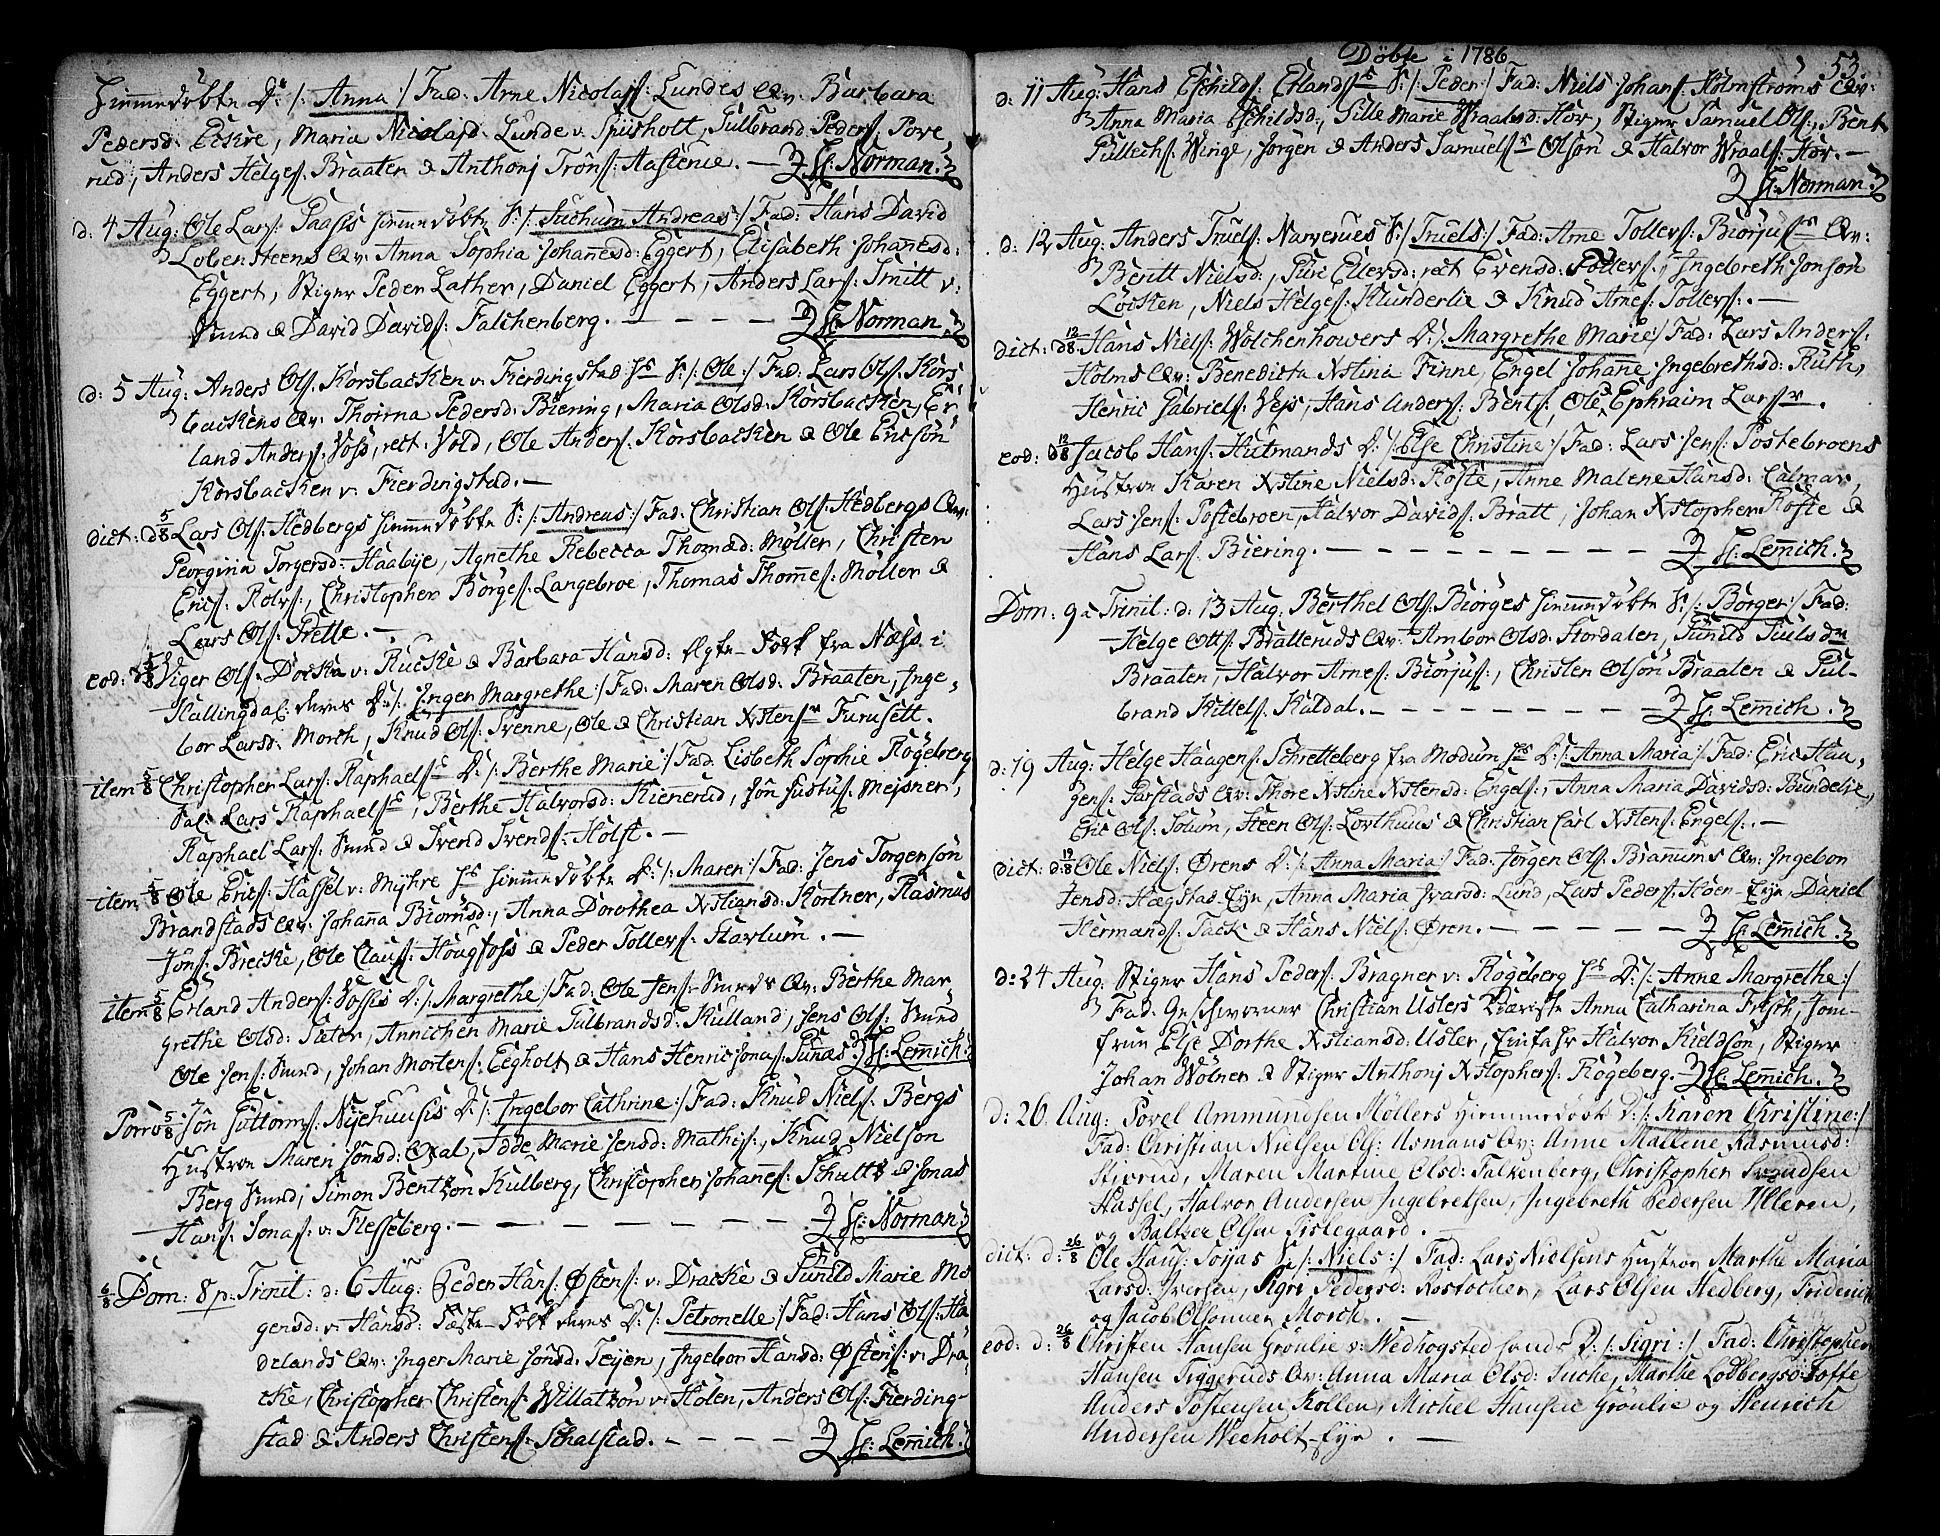 hiemmedöbte D: /: Anna :/ Fad: Arne Nicolajs: Lundes Qv: Barbara
Pedersd: Eskie, Maria Nicolajsd: Lunde v. Spisholt, Gulbrand Peders: Pove,
rud, Anders Helges: Braaten & Anthonj Tröns: Aastenie. — H: Norman.
d: 4 Aug: Ole Lars: Paasis hiemmedöbte S: /: Andreas :/ Fad: Hans David
Lobensteens Qv: Anna Sophia Johañesd: Eggert, Elisabeth Johañesd:
Eggert, Stiger Peder Lather, Daniel Eggert, Anders Lars: Smitt v:
Smed & David Davids: Falchenberg. — — — H: Norman.
d: 5 Aug: Anders Ols: Korsbacken v. Fierdingstad hs S: /: Ole :/ Fad: Lars Ols: Kors-
backens Qv: Thorna Pedersd: Biering, Maria Olsd: Korsbacken, Er,
land Anders: Voss, rect: Vold, Ole Anders: Korsbacken & Ole Ericsön
Korsbacken v: Fierdingstad. —
dict: d 5/8 Lars Ols: Hedbergs hiemmedöbte S: /: Andreas :/ Fad: Christian Ols: Hedbergs Qv:
Georgina Torgersd: Haabÿe, Agnethe Rebecca Thomæd: Möller, Christen
Erics: Rolvs:, Christopher Börges: Langebroe, Thomas Thomes: Möller &
Lars Ols: Prette. —
eod: d 5/8 Viger Ols: Docka v: Rucke & Barbara Hansd: Ægte-Folk fra Næss i
Hallingdal: deres D: /: Inger Margrethe :/ Fad: Maren Olsd: Braaten, Inge,
bor Larsd: Morch, Knud Ols: Svenne, Ole & Christian Xstens: Furusett.
item 5/8 Christopher Lars: Raphaels: D: /: Berthe Marie :/ Fad: Lisbeth Sophie Rögeberg
Sal: Lars Raphaels:, Berthe Halvorsd: Kiennerud, Jön Justus: Mejsner,
Raphael Lars: Smed & Svend Svends: Holst. —
item 5/8 Ole Erics: Hassel v: Mÿhre hs hiemmedöbte D: /: Maren :/ Fad: Jens Torgersön
Brandstads Qv: Johaña Biörnsd:, Anna Dorothea Xstiansd: Kortner, Rasmus
Jöns: Brecke, Ole Claus: Hougfoss & Peder Tollevs: Stavlum. —
item 5/8 Erland Anders: Vossis D: /: Margrethe :/ Fad: Ole Jens: Smeds Qv: Berthe Mar-
grethe Olsd: Sæter, Annichen Marie Gulbrandsd: Kulland, Jens Ols: Smed
Ole Jens: Smed, Johan Mortens: Eegholt & Hans Henric Jonas: Sunas. H: Lemich.
Porro 5/8 Jön Guttorms: Nÿehuusis D: /: Ingebor Cathrine :/ Fad: Knud Niels: Bergs
Hustroe Maren Jönsd: Oxal, Tode Marie Jensd: Mathis:, Knud Nielsön
Berg Smed, Simon Bentzon Kulberg, Christopher Johañes: Schultz & Jonas
Hans: Jonas: v: Flesseberg. — — — H: Norman.
6/8 Dom: 8 p: Trinit: d: 6 Aug: Peder Hans: Östens: v: Dracke & Gunild Marie Mo
gensd: v: Hansd: Fæste-Folk deres D: /: Petronelle :/ Fad: Hans Ols: Ha
delands Qv: Inger Marie Jönsd: Teijen, Ingebor Hansd: Östens: v: Dra,
cke, Christopher Christens: Willatzön v: Holen, Anders Ols: Fierding-
stad & Anders Christens: Schalstad. — — — H: Lemich.
Döbte i 1786.
53.
d: 11 Aug: Hans Eschilds: Erlands: S: /: Peder :/ Fad: Niels Johans: Holmströms Qv:
Anna Maria Eschildsd:, Sille Marie Wraalsd: Hov, Stiger Samuel Ols:, Bent
Gullichs: Winge, Jörgen & Anders Samuels: Olsön & Halvor Wraals: Hov. —
H: Norman.
d: 12 Aug: Anders Truels: Narverues S: /: Truels :/ Fad: Arne Tollevs: Biörjus: Qv:
Beritt Nielsd:, Guri Ellevsd: rect Evensd: Tollevs:, Ingebreth Jonsön
Löcken, Niels Helges: Klunderlie & Knud Arnes: Tollevs:. —
dict: d 12/8 Hans Niels: Wolchenhowers D: /: Margrethe Marie :/ Fad: Lars Anders:
Holms Qv: Benedicta Xstina Finne, Engel Johañe Ingebrethsd: Ruth,
Henric Gabriels: Vejs, Hans Anders: Bents:, Ole & Ephraim Lars:.
eod: d 12/8 Jacob Hans: Hutmands D: /: Else Christine :/ Fad: Lars Jens: Postebroens
Hustroe Karen Xstine Nielsd: Röste, Anne Malene Hansd: Calmar,
Lars Jens: Postebroen, Halvor Davids: Bratt, Johan Xstopher Röste &
Hans Lars: Biering. — — — H: Lemich.
Dom: 9 a Trinit: d: 13 Aug: Berthel Ols: Biörges hiemmedöbte S: /: Börger :/ Fad:
Helge Ols: Bratteruds Qv: Ambor Olsd: Stordalen, Gunild Juulsd:
Braaten, Halvor Arnes: Biörjus:, Christen Olsön Braaten & Gul-
brand Kittels: Kaldal. — — — H: Lemich.
d: 19 Aug: Helge Haagens: Schretteberg fra Modum hs D: /: Anna Maria :/ Fad: Eric Haa,
gens: Garstads Qv: Thore Xstine Xstensd: Engels:, Anna Maria Davidsd: Bundelie,
Eric Ols: Solum, Steen Ols: Lovthuus & Christian Carl Xstens: Engels:. —
dict: d: 19/8 Ole Niels: Ørens D: /: Anna Maria :/ Fad: Jörgen Ols: Bramums Qv: Ingebor
Jensd: Hægstad Eje, Anna Maria Ivarsd: Lund, Lars Peders: Hoen-Eje, Daniel
Hermands: Tack & Hans Niels: Øren. — — — H: Lemich.
d: 24 Aug: Stiger Hans Peders: Bragner v: Rögeberg hs D: /: Anne Margrethe :/
Fad: Geschworner Christian Uslers Kiæriste Anna Catharina Frisch, Jom-
frue Else Dorthe Xstiansd: Usler, Einfahr Halvor Kieldsön, Stiger
Johan Wölner & Stiger Anthonj Xstophers: Rögeberg. H: Lemich.
d: 26. Aug: Povel Ammundsen Möllers hiemmedöbt D: /: Karen Christine :/
Fad: Christian Nielsen Ols: Asmans Qv: Anne Mallene Rasmusd:
Stierud, Maren Martine Olsd: Falkenberg, Christopher Svendsen
Hassel, Halvor Andersen Ingebretsen, Ingebreth Pedersen Ulleren,
og Baltzer Olsen Gislegaard. —
dict: d: 26/8 Ole Hans: Tojas S: /: Niels :/ Fad: Lars Nielsens Hustroe Marthe Maria
Larsd: Iversen, Sigri Pedersd: Rostocher, Lars Olsen Hedberg, Friderich
og Jacob Olsønner Morch. —
eod: d: 26/8 Christen Hansen Grönlie v: Wedhogsted hands D: /: Sigri :/ Fad: Christopher
Hansen Tiggeruds Qv: Anna Maria Olsd: Suche, Marthe Lodbergsd: Toffte
Anders Tostensen Kollen, Michel Hansen Grönlie og Henrich
Andersen Weeholt-Eje. —